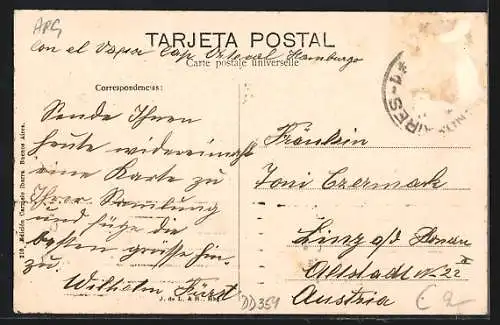 APG
TARJETA POSTAL
Con el Vapor Cap Ortegal Hamburgo
Carte postale universelle
Correspondencias:
Sende Ihnen
heute widereimahl
eine Karte zu
Ihrer Samlung
und füge die
besten grüsse hin-
zu.
Wilhelm Fürst
Fräulein
Toni Czermak
Linz a/d Donau
Altstadt N. 22
II
Austria
AIRES
*1-
319 Edición Carmelo Ibarra Buenos Aires.
J. de L. & R.
DD354
€2